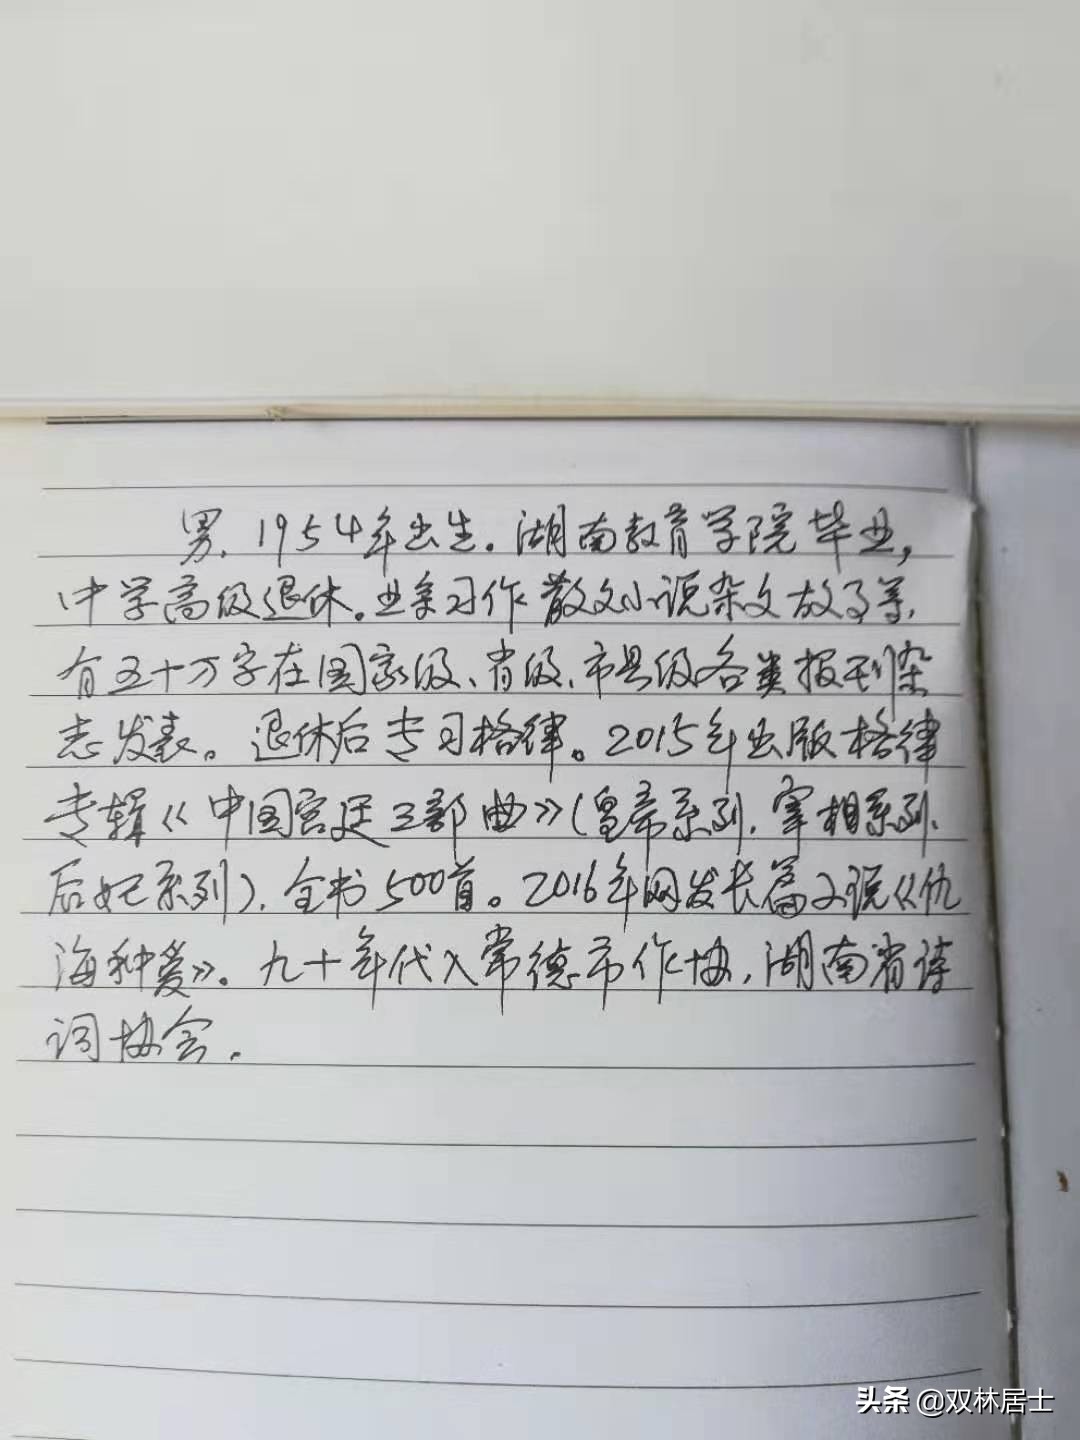 男，1954年出生。湖南教育学院毕业，
中学高级退休。业余习作散文小说杂文故事等，
有五十万字在国家级、省级、市县级各类报刊杂
志发表。退休后专习格律。2015年出版格律
专辑《中国宫廷三部曲》（皇帝系列，宰相系列，
后妃系列），全书500首。2016年网发长篇小说《仇
海种爱》。九十年代入常德市作协，湖南省诗
词协会。
头条 @双林居士